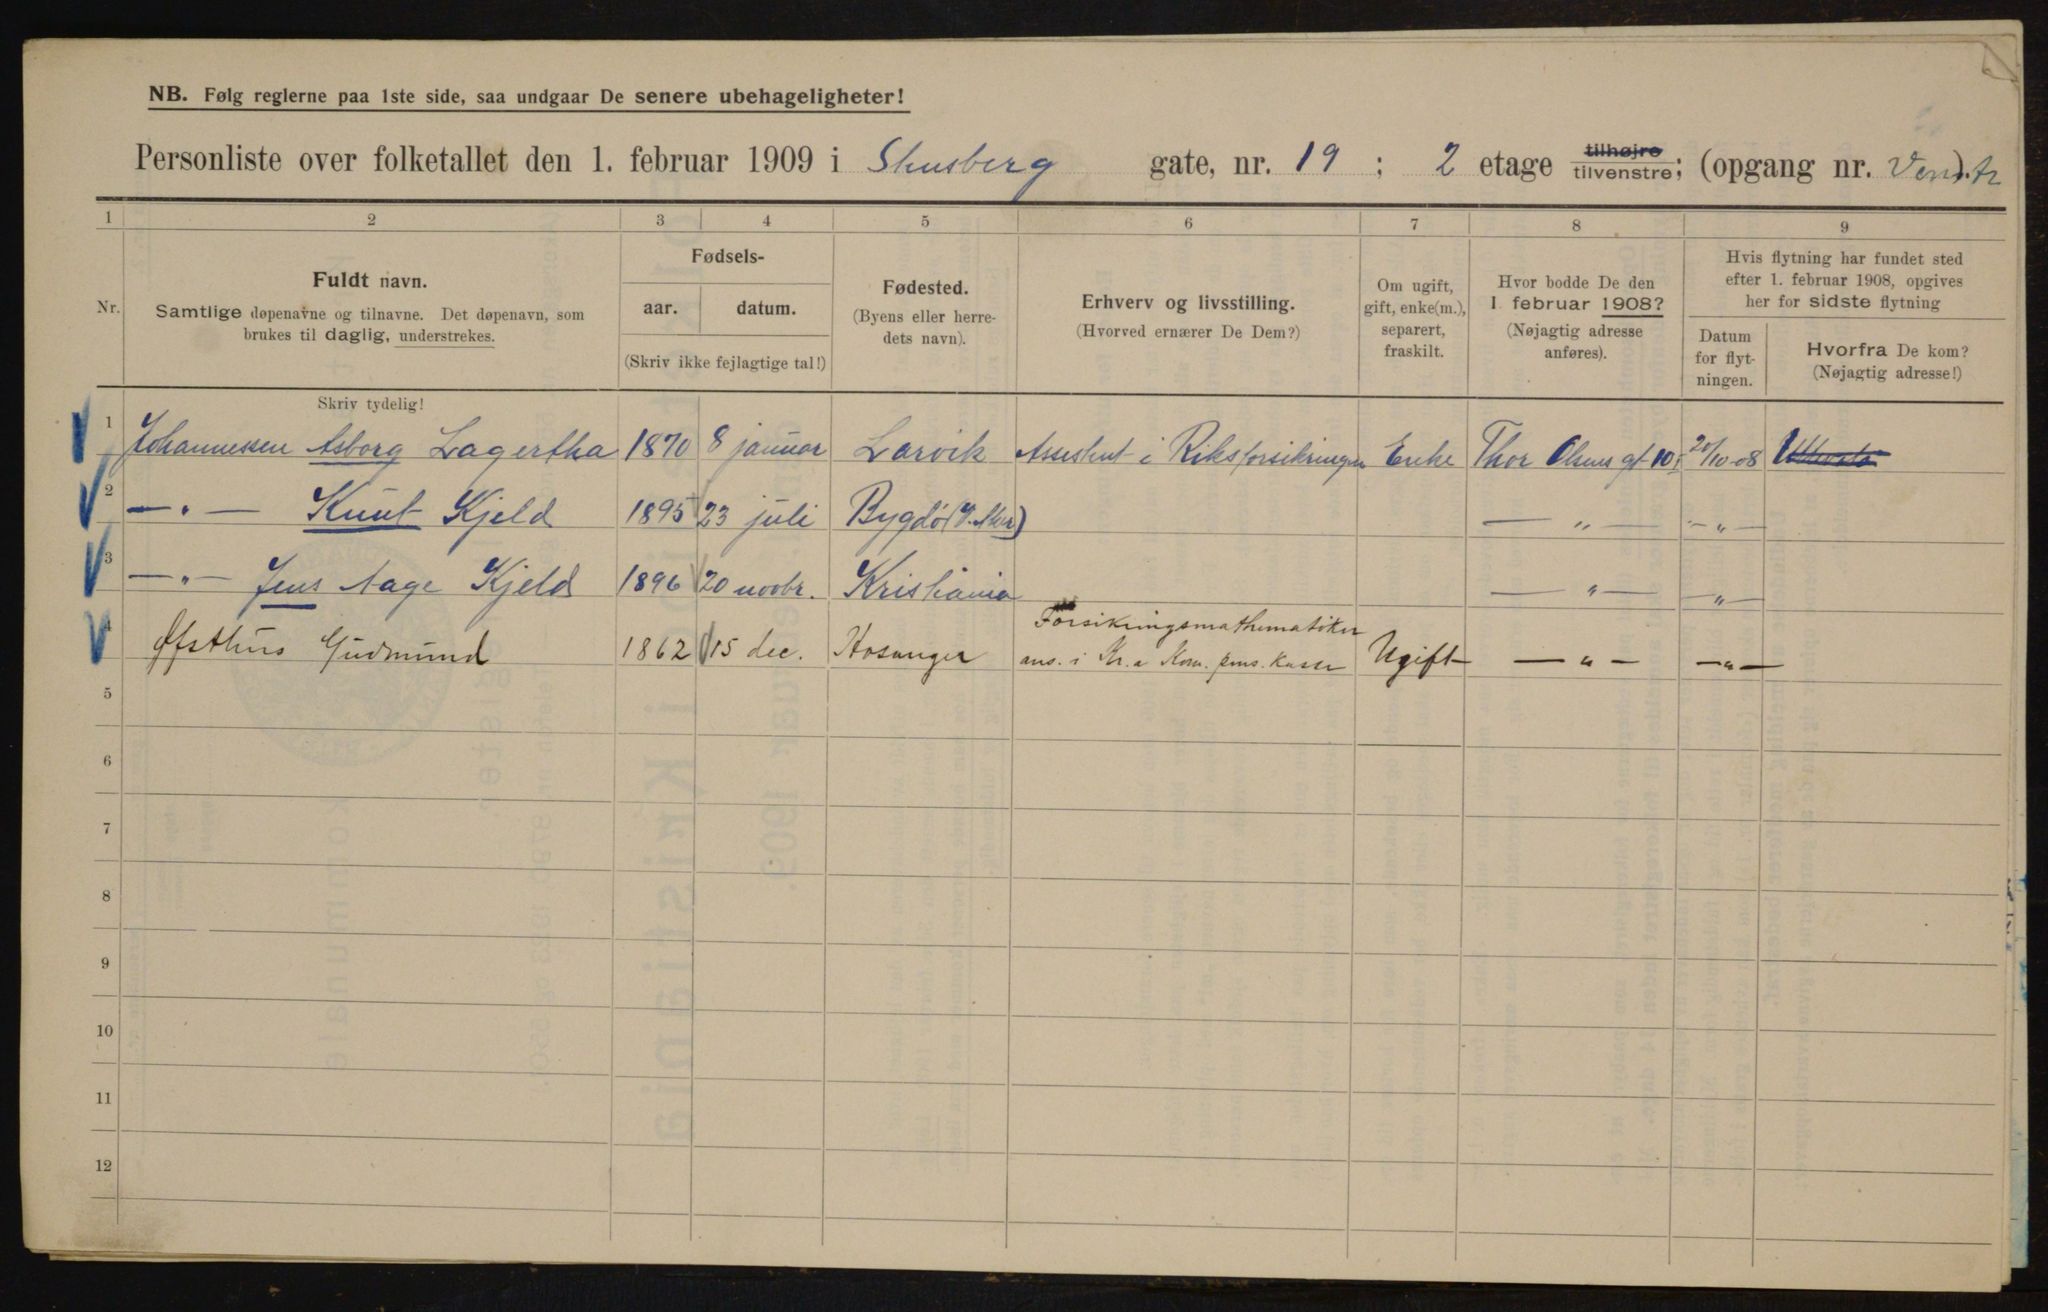 NB. Følg reglerne paa 1ste side, saa undgaar De senere ubehageligheter!
Personliste over folketallet den 1. februar 1909 i Stensberg gate, nr. 19 ; 2 etage tilhøjre tilvenstre; (opgang nr. Venstr).
1 2 3 4 5 6 7 8 9
Nr.
Fuldt navn.
Samtlige døpenavne og tilnavne. Det døpenavn, som
brukes til daglig, understrekes.
Skriv tydelig!
Fødsels-
aar. datum.
(Skriv ikke fejlagtige tal!)
Fødested.
(Byens eller herre-
dets navn).
Erhverv og livsstilling.
(Hvorved ernærer De Dem?)
Om ugift,
gift, enke(m.),
separert,
fraskilt.
Hvor bodde De den
1 februar 1908?
(Nøjagtig adresse
anføres).
Hvis flytning har fundet sted
efter 1. februar 1908, opgives
her for sidste flytning
Datum
for flyt-
ningen.
Hvorfra De kom?
(Nøjagtig adresse!)
1 Johannessen Asborg Lagertha 1870 8 januar Larvik Assistent i Riksforsikringen Enke Thor Olsens gt 10 20/10-08
2 — " — Knut Kjeld 1895 23 juli Bygdö (V. Aker) — " — — " —
3 — " — Jens Aage Kjeld 1896 20 novbr. Kristiania — " — — " —
4 Øfsthus Gudmund 1862 15 dec. Hosanger Forsikringsmathematiker
ans. i Kr.a Kom. pens. kasse Ugift — " — — " —
5
6
7
8
9
10
11
12